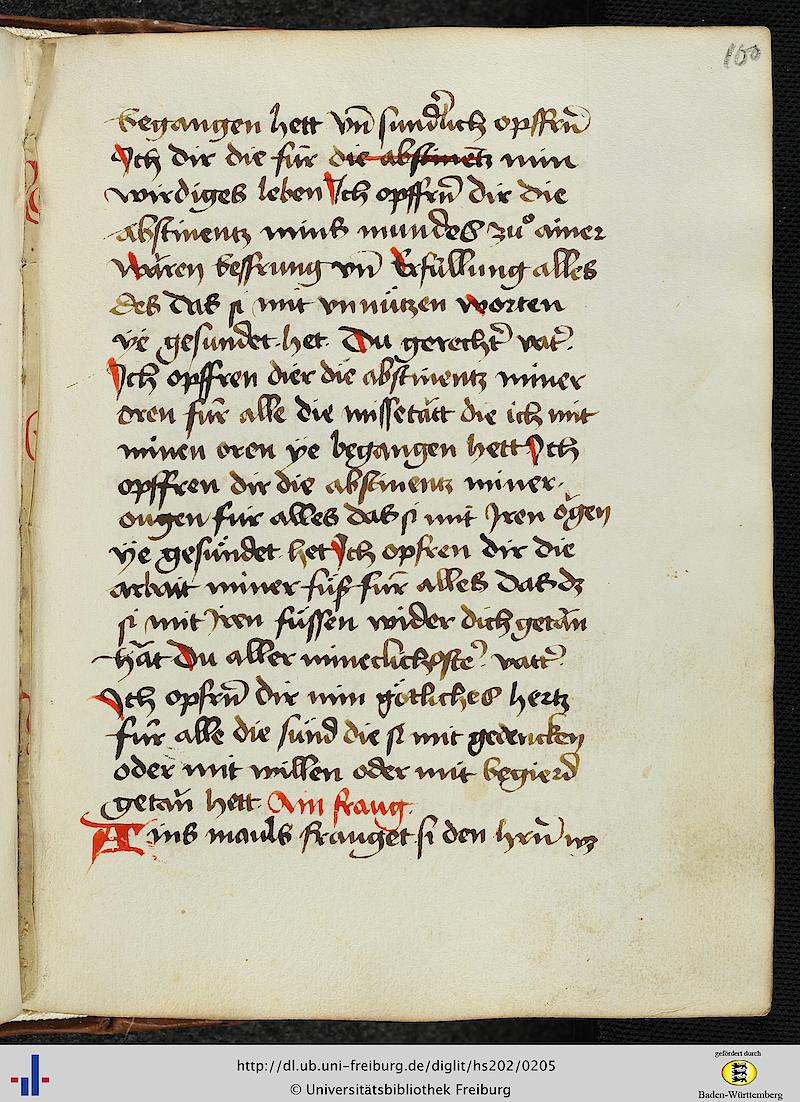 100
begangen hett vn̄ sundͤrlich opffrn̄
Ich dir die für die abstinentz min
wirdiges leben Ich opffrn̄ dir die
abstinentz mins mundes zuͦ ainer
waͤren bessrung vn̄ Erfüllung alles
des das si mit vnnützen worten
ye gesundet het Du gerechtˀ vatˀ
Ich opffren dier die abstinentz miner
oren für alle die missetätt die ich mit
minen oren ye begangen hett Ich
opffren dir die abstinentz miner
ougen für alles das si mit Iren oͮgen
ye gesündet het Ich opfren dir die
arbait miner füß für alles das dz
si mit Iren füssen wider dich getān
hāt Du aller mineclichostēˀ vattˀ
Ich opfrn̄ dir min götliches hertz
für alle die sünd die si mit gedencken
oder mit willen oder mit begierd
getān hett Ain fraug
Ains mauls frauget si den hrn̄ wz
http://dl.ub.uni-freiburg.de/diglit/hs202/0205
© Universitätsbibliothek Freiburg
gefördert durch
Baden-Württemberg